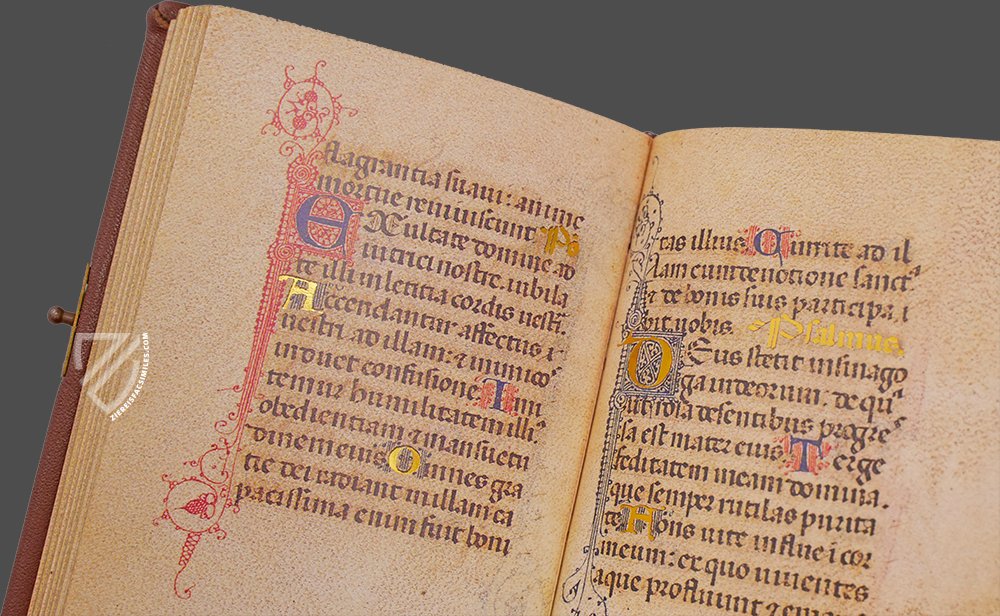 flagrantia suaui: anime
mortue reuiuiscunt. Ps
EXultate domine ad
iutrici nostre. iubila
te illi in leticia cordis uestri.
Accendantur affectus
uestri ad illam: et inimicos
induet confusione. Imi
temur humilitatem illi9
obedientiam et mansuetu
dinem eius. Omnes gra
tie dei radiant in illa. nica
pacissima enim fuit boni
tas illius. Currite ad il
lam cum deuotione sancta
et de bonis suis participa
bit uobis. Psalmus.
DEus stetit in sinago
ga iudeorum: de qua
ut rosa de sentibus progre
sa est mater eius. Terge
feditatem meam domina.
que semper rutilas purita
te. Fons uite influe i cor
meum: ex quo uiuentes
aque profluunt et
ZIEREISFACSIMILES.COM